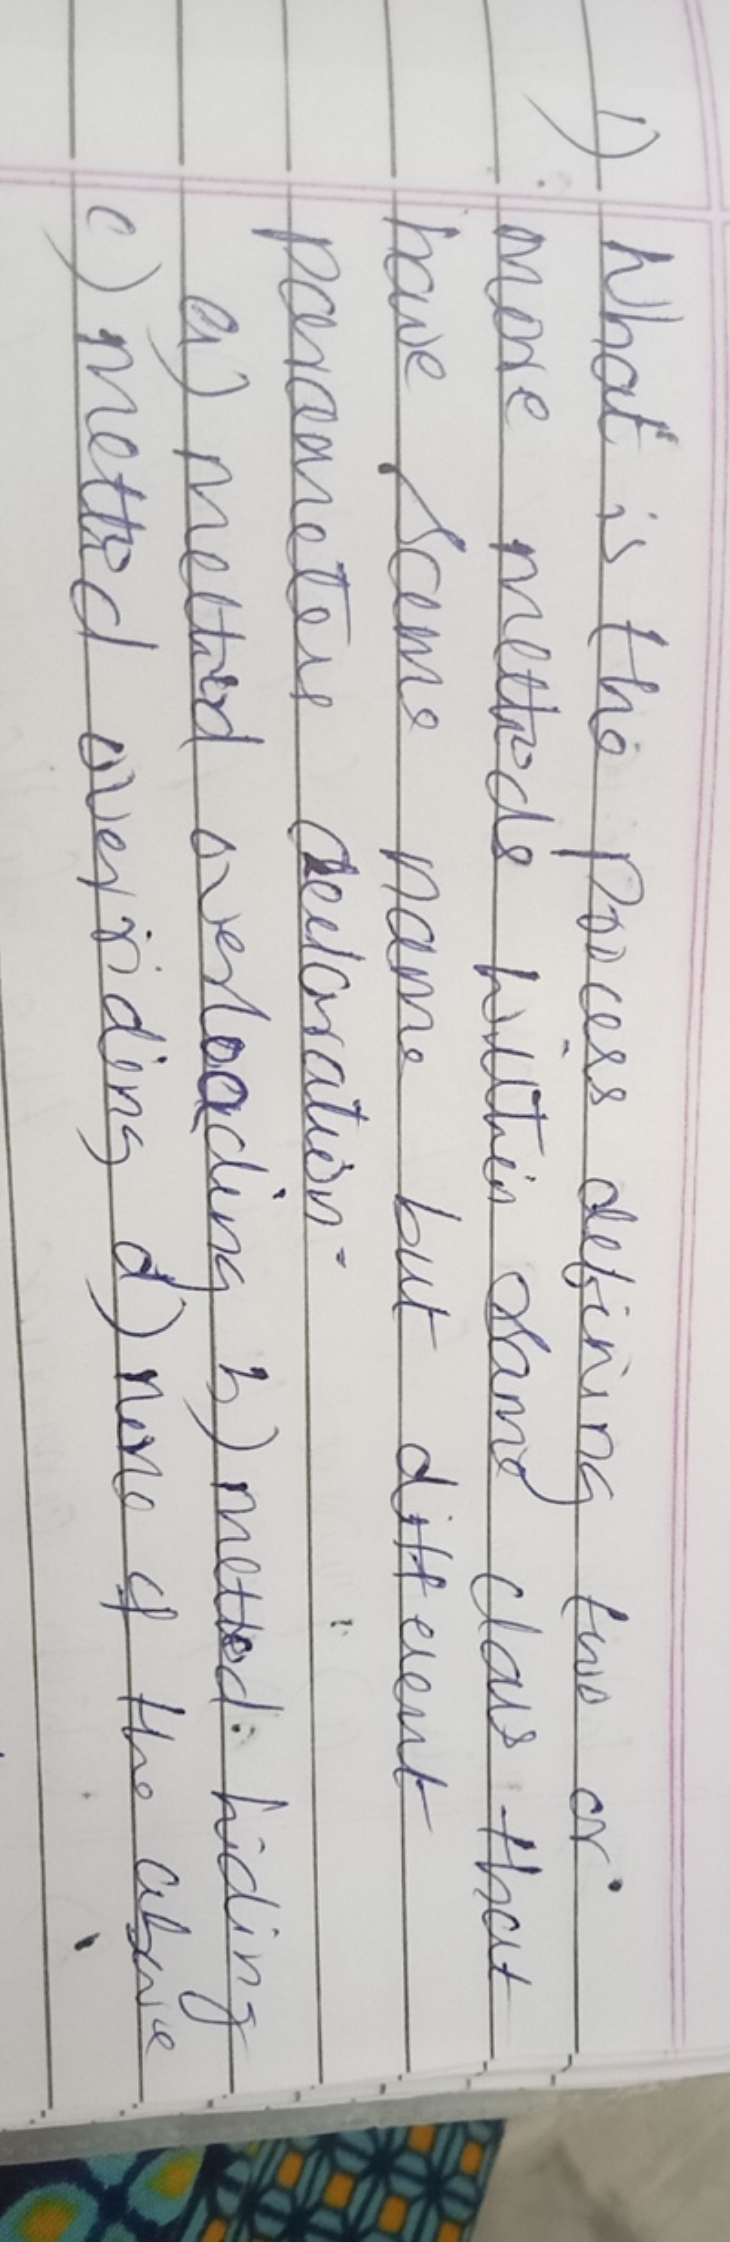 1) What is the Process defining two or
more methods within same class that
have same name but different
parameters declaration.
a) method overloading b) method hiding
c) method overriding d) none of the above